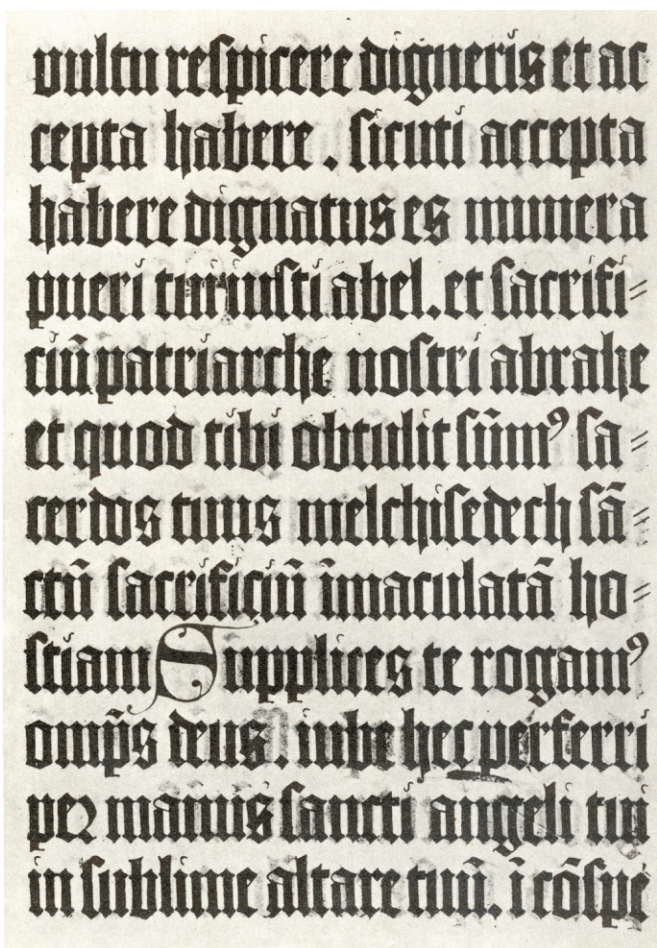 vultu reſpicere digneris et ac
cepta habere . ſicuti accepta
habere dignatus es munera
pueri tui iuſti abel . et ſacrifi⸗
ciū patriarche noſtri abrahe
et quod tibi obtulit ſūmꝰ ſa⸗
cerdos tuus melchiſedech ſā⸗
ctū ſacrificiū īmaculatā ho⸗
ſtiam Supplices te rogamꝰ
omp̄s deus . iube hec perferri
per manus ſancti angeli tui
in ſublime altare tuū . ī cōſpe